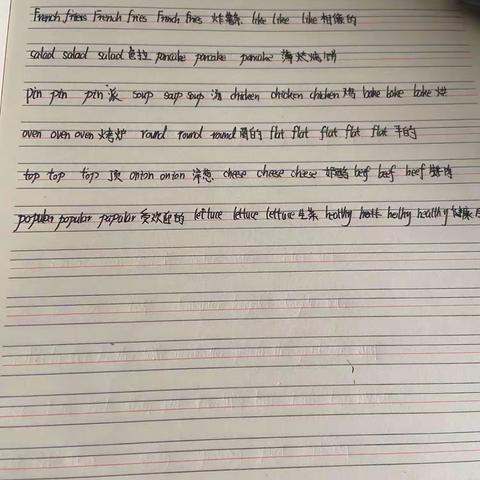 French friers French fries French fries 炸薯条 like like like 相像的
salad salad salad 色拉 pancake pancake pancake 薄烂烙饼
pin pin pin 派 soup soup soup 汤 chicken chicken chicken 鸡 bake bake bake 烘
oven oven oven 烤炉 round round round 圆的 flat flat flat flat flat 平的
top top top 顶 onton onton 洋葱 cheese cheese cheese 奶酪 beef beef beef
popular popular popular 受欢迎的 lettuce lettuce lettuce 生菜 healthy healthy 健康